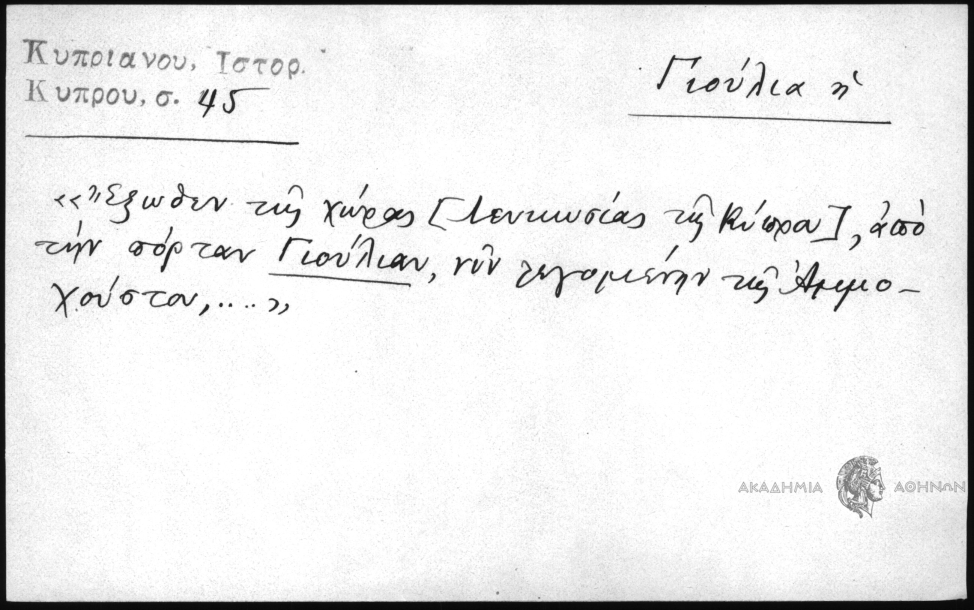 Κυπριανου, Ιστορ.
Κυπρου, σ. 45
Γιούλια ἡ
«Ἔξωθεν τῆς χώρας [Λευκωσίας τῆς Κύπρου], ἀπὸ
τὴν πόρταν Γιούλιαν, νῦν λεγομένην τῆς Ἀμμο-
χούστου, ....»
ΑΚΑΔΗΜΙΑ ΑΘΗΝΩΝ